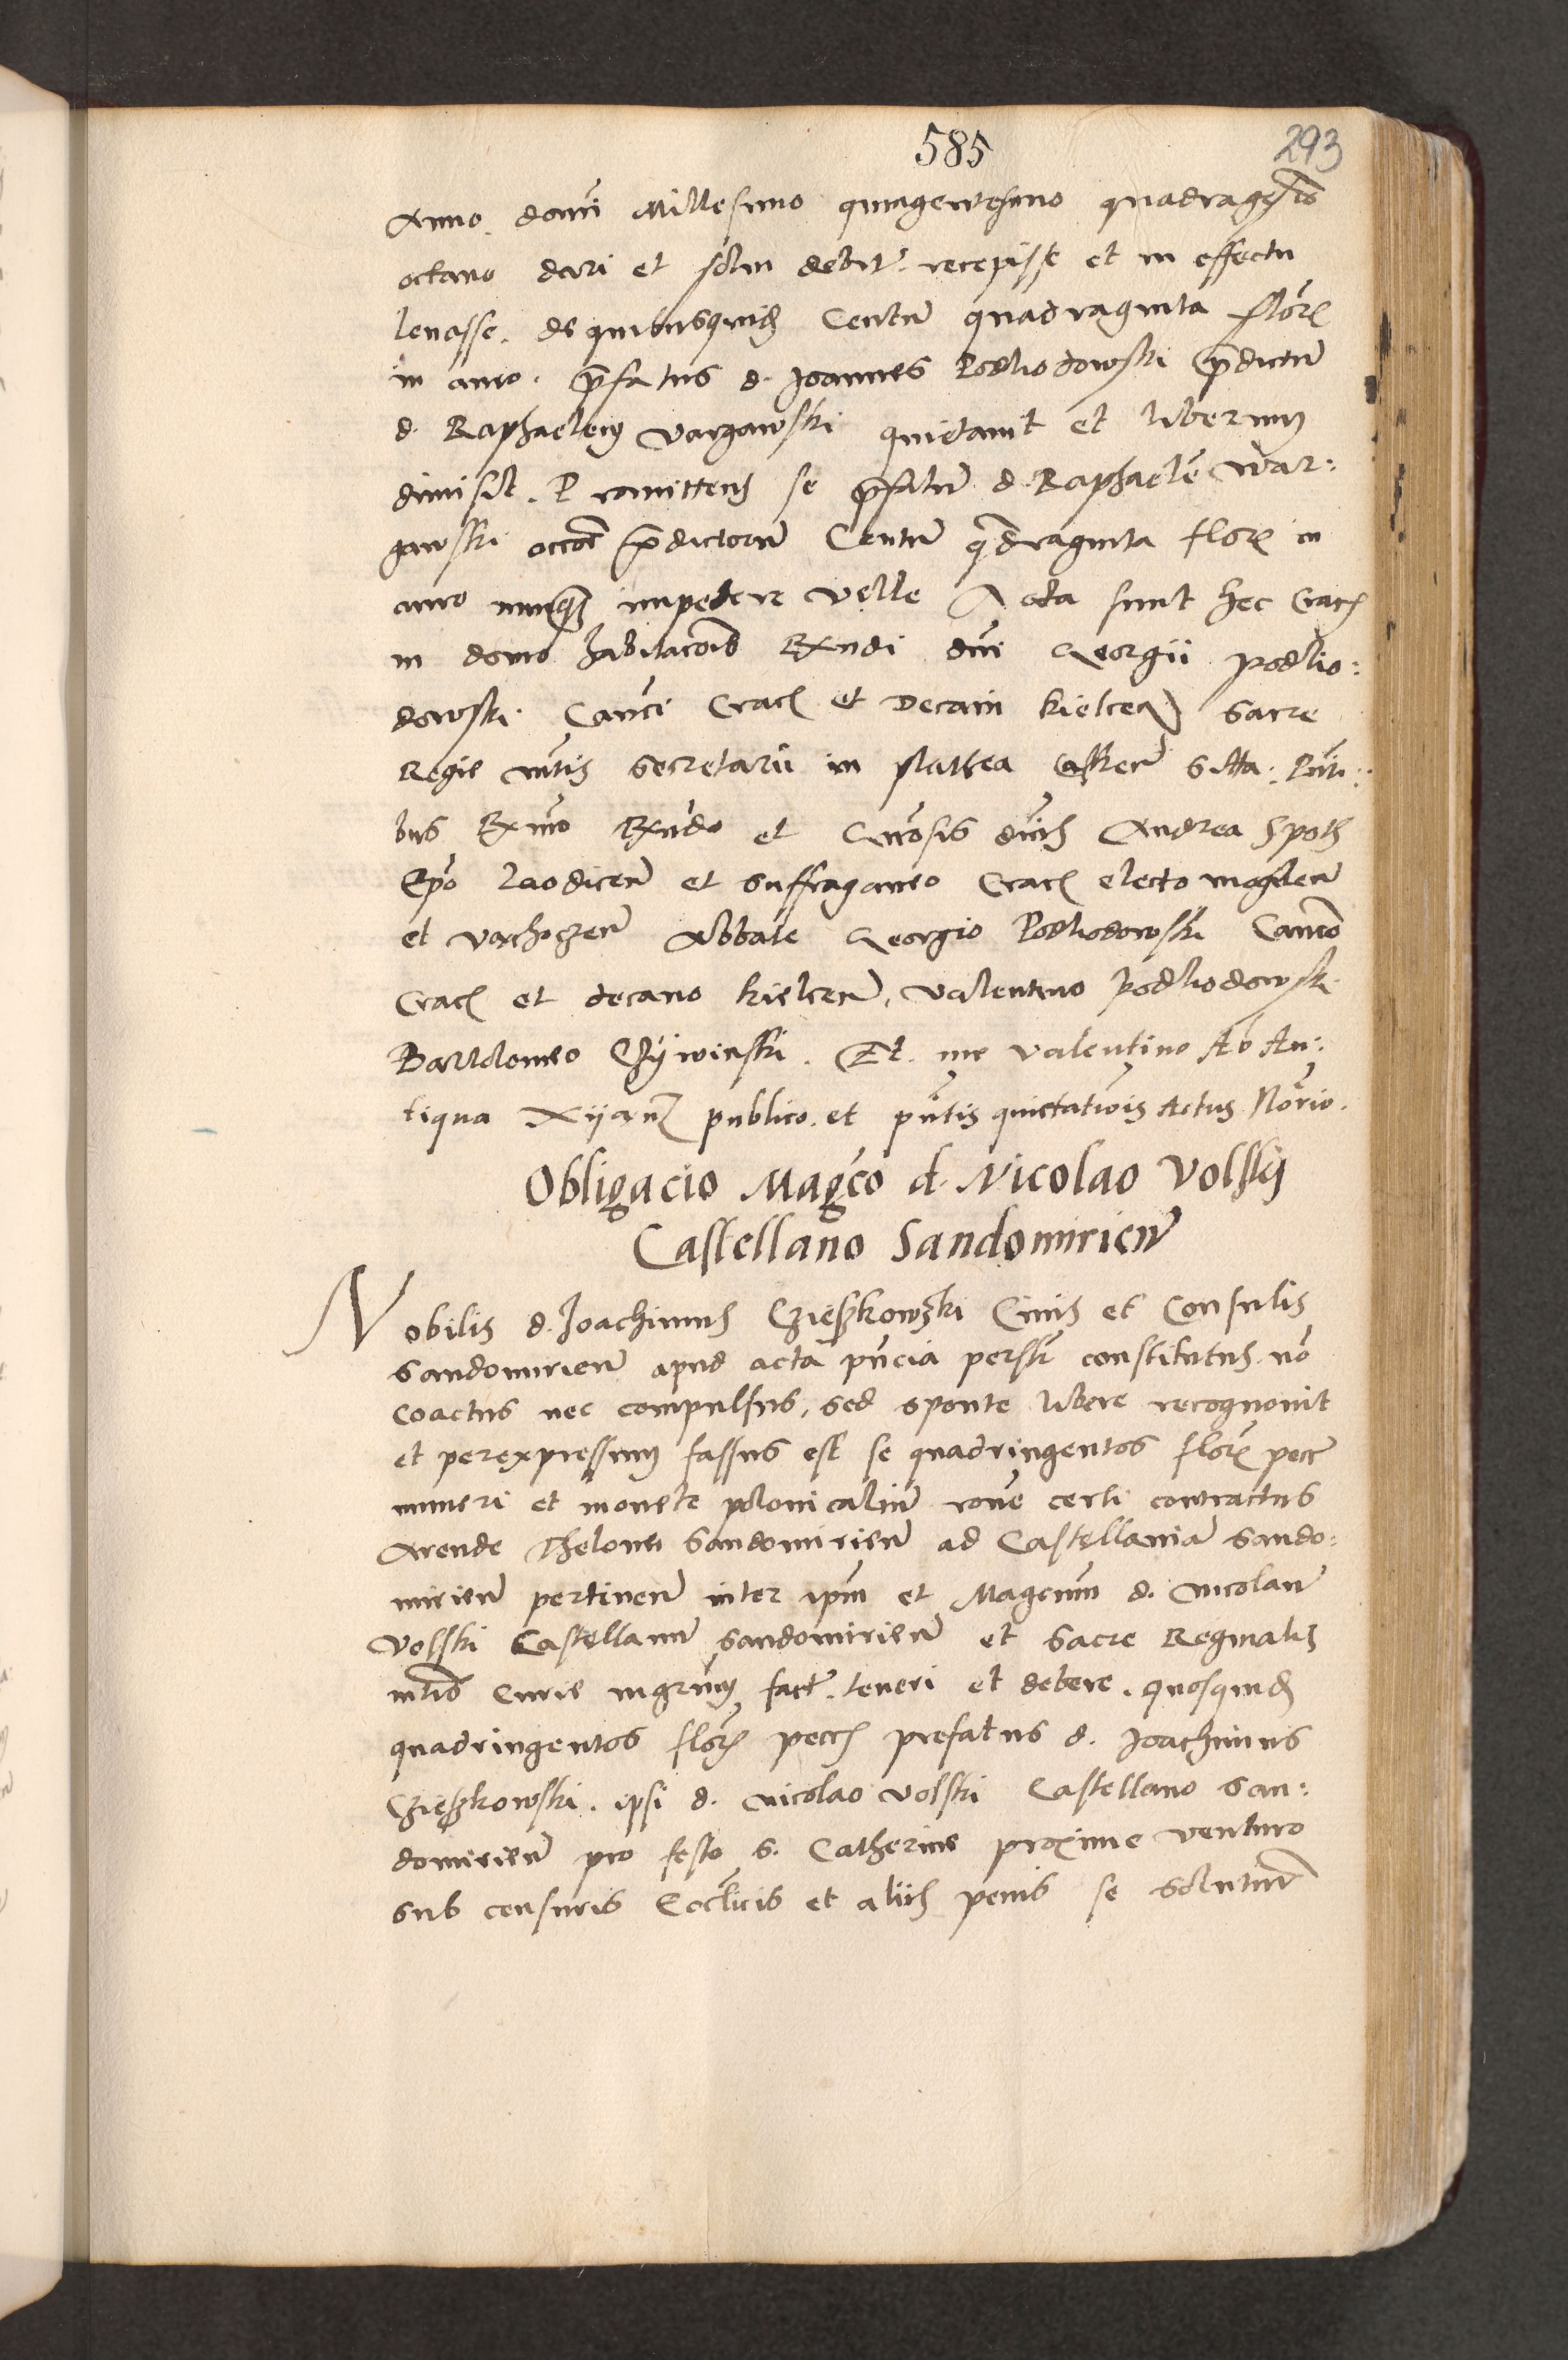 585
293
Anno domi Millesimo quingentesimo quadragesio
octavo dari et solm debit. recepisse et in effectu
levasse. de quibusquid Centu quadraginta flor
in auro. pfatus d. Joannes Podliodowski pdictu
d. Raphaelem Vargawski quietavit et liberum
dimisit. Promittens se pfatu d. Raphaele War:
gawski occoe pdictoru Centu qdraginta flor in
auro nunqz impetere velle Acta sunt hec Crac
in domo habitacois Rndi dni Georgii Podlio:
dowski Canci Crac et Decani kielcen Sacre
Regie mtis Secretarii in plathea Castren sitta: Pnti:
bus Rmo Rndo et Gnosis dnis Andrea Spoth
Epo Laodicen et suffraganeo Crac electo mogilen
et Vachozen Abbate Georgio Podliodowski Canco
Crac et decano kielcen, Valentino Podliodowski
Bartolomeo Chywinski. Et me Valentino Ab An:
tiqua Xijanz publico. et pntis quietationis Actus Norio.
Obligacio Magco d. Nicolao Volskij
Castellano Sandomirien
Nobilis d. Joachimus Czieszkowski Civis et Consulis
Sandomirien apud acta pncia perslr constitutus no
coactus nec compulsus, sed sponte libere recognovit
et perexpressum fassus est se quadringentos flor pece
numeri et monete polonicaliu rone certi contractus
Arende Thelonei Sandomirien ad Castellania Sando:
mirien pertinen inter ipm et Magcum d. Nicolau
Volski Castellanu Sandomirien et Sacre Reginalis
mtis Curie mgrum fact. teneri et debere. quosquid
quadringentos flor pecc prefatus d. Joachimus
Czieszkowski. ipsi d. Nicolao Volski Castellano San:
domirien pro festo S. Catherine proxime venturo
sub censuris Ecclicis et aliis penis se soluturu